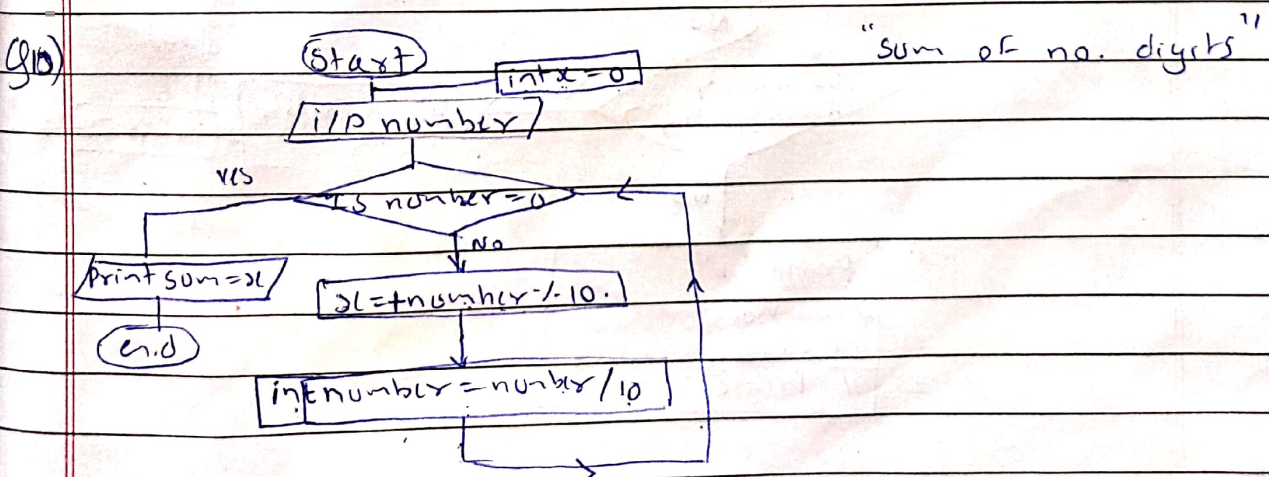 Q10)
"sum of no. digits"
Start
int x = 0
i/p number
yes
Is number = 0
No
Print sum = x
x = + number % 10.
end
int number = number / 10